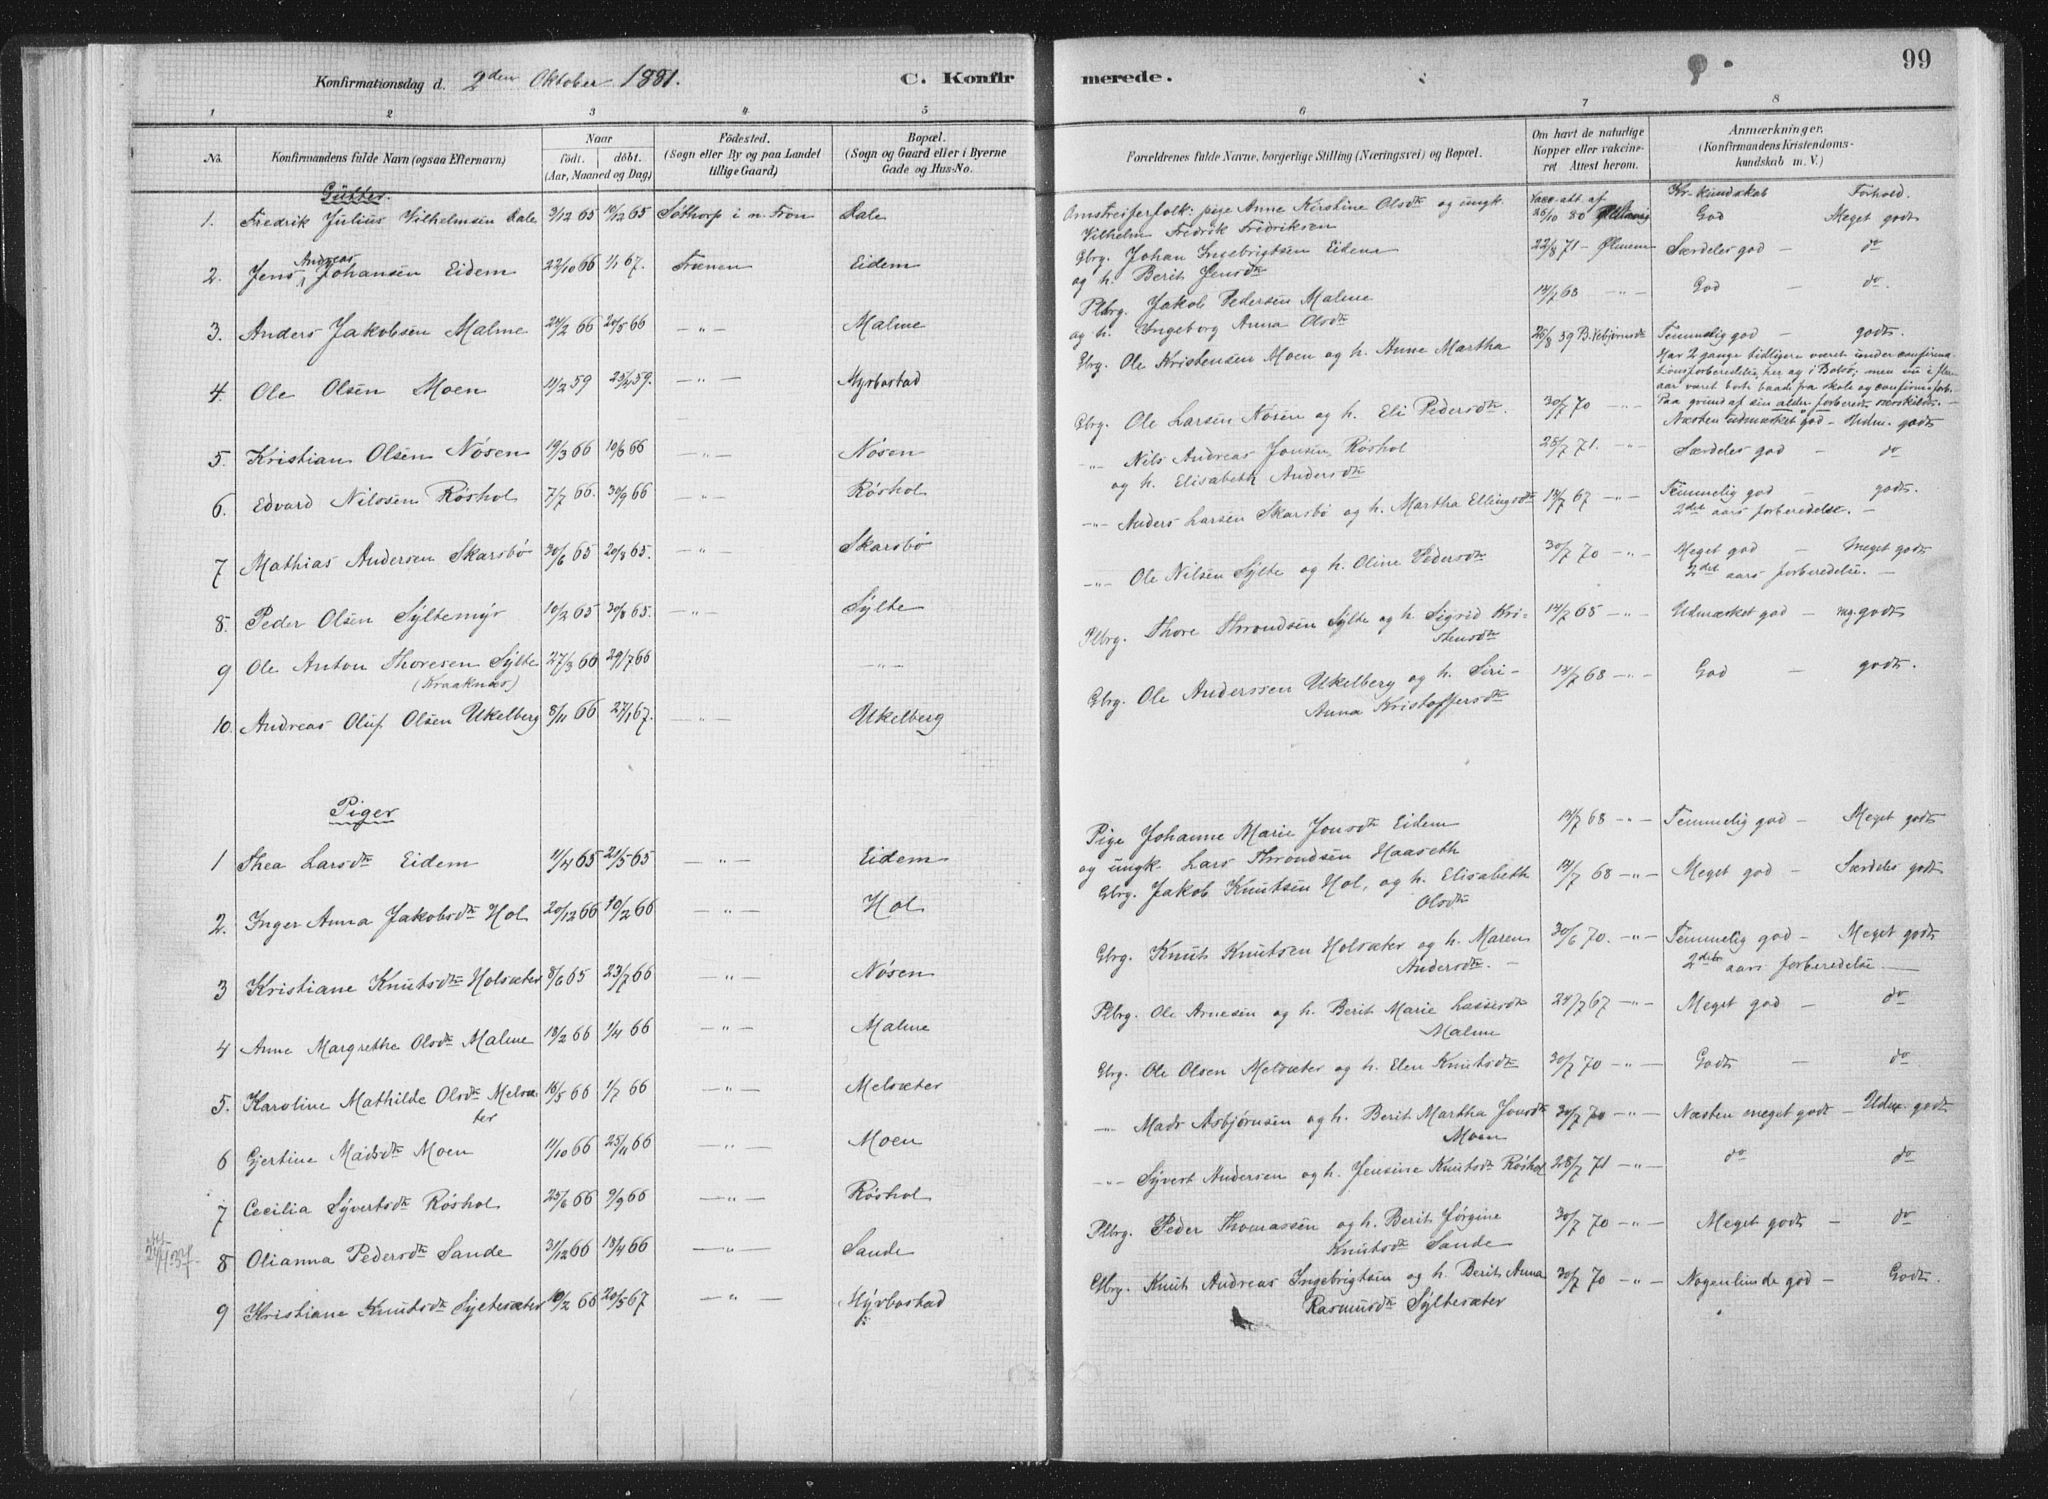 99
Konfirmationsdag d. 2den Oktober 1881. C. Konfir merede.
1 2 3 4 5 6 7 8
No. Konfirmandens fulde Navn (ogsaa Efternavn) Naar födt. döbt. (Aar, Maaned og Dag) Födested. (Sogn eller By og paa Landet tillige Gaard) Bopæl. (Sogn og Gaard eller i Byerne Gade og Hus-No. Forældrenes fulde Navne, borgerlige Stilling (Næringsvei) og Bopæl. Om havt de naturlige Kopper eller vaccineret Attest herom. Anmærkninger. (Konfirmandens Kristendomskundskab m. V.)
Gutter. Kr. kundskab Forhold.
1. Fredrik Julius Vilhelmsen Dale 9/12 65 10/12 65 i n. Fron Dale Omstreiferfolk: pige Anne Kirstine Olsdtr og ungk. Vilhelm Fredrik Fridriksen Vacc. att. af 25/10 80 God Meget godt
2. Jens Andreas Johansen Eidem 22/10 66 1/1 67. Frænen Eidem Gbrg. Johan Ingebrigtsen Eidem og h. Berit Jensdtr 22/8 71 - Særdeles god - do
3. Anders Jakobsen Malme 24/2 66 20/5 66 - " - Malme Plbrg. Jakob Pedersen Malme og h. Ingeborg Anna Olsdtr 14/7 68 - " - God - do.
4. Ole Olsen Moen 11/2 59 25/4 59. - " - Myrbostad Gbrg. Ole Kristensen Moen og h. Anne Martha 26/8 59 Temmelig god - godt.
Har 2 gange tidligere været under confirma-
tionsforberedelse, her og i Bolsø; men nu i flere
aar været borte baade fra skole og confirm. forb.
Paa grund af sin alder forberedt særskildt. -
5. Kristian Olsen Nøsen 19/3 66 10/6 66 - " - Nøsen Gbrg. Ole Larsen Nøsen og h. Eli Pedersdtr. 30/7 70 - " - Næsten udmærket god - Udm. godt
6. Edvard Nilssen Röshol 7/7 66. 30/9 66 - " - Röshol - " - Nils Andreas Jonsen Röshol og h. Elisabeth Andersdtr 25/7 71. - " - Særdeles god - do
7 Mathias Andersen Skarsbø 30/6 65 20/8 65. - " - Skarsbø - " - Anders Larsen Skarsbø og h. Martha Ellingsdtr 14/7 67 - " - Temmelig god - godt. 2det aars forberedelse. -
8. Peder Olsen Sÿltemÿr 10/2 65 30/8 65. - " - Sÿlte - " - Ole Nilsen Sylte og h. Oline Pedersdtr 30/7 70 - " - Meget god - Meget godt 2det aars forberedelse. -
9 Ole Anton Thoresen Sÿlte (Kraaknæs) 27/3 66 29/7 66 - " - Plbrg. Thore Throndsen Sÿlte og h. Sigrid Kristensdtr 14/7 68 - " - Udmærket god - mg. godt
10. Andreas Oluf Olsen Ukelberg 8/11 66 27/1 67. - " - Ukelberg Gbrg. Ole Anderssen Ukelberg og h. Siri-Anna Kristoffersdtr 14/7 68 - " - God - godt.
Piger
1 Thea Larsdtr Eidem 11/4 65 21/5 65 - " - Eidem Pige Johanne Marie Jonsdtr Eidem og ungk. Lars Throndsen Haaseth 14/7 68 - " - Temmelig god - Meget godt
2. Inger Anna Jakobsdtr Hol 20/12 66 10/2 66 - " - Hol Gbrg. Jakob Knutsen Hol, og h. Elisabeth Olsdtr 14/7 68 - " - Meget god - Særdeles godt
3 Kristiane Knutsdtr Holsæter 8/6 65 23/7 66 - " - Nøsen Gbrg. Knut Knutsen Holsæter og h. Maren Andersdtr. - 30/6 70. - " - Temmelig god - Meget godt 2det aars forberedelse -
4 Anne Margrethe Olsdtr Malme 18/2 66 1/4 66 - " - Malme Plbrg. Ole Arnesen og h. Berit Marie Lassesdtr Malme 24/7 67 - " - Meget god - do
5. Karoline Mathilde Olsdtr Melsæter 16/5 66 1/7 66 - " - Melsæter Gbrg. Ole Olsen Melsæter og h. Elen Knutsdtr 30/7 70 - " - Godt - do
6 Gjertine Madsdtr Moen 11/10 66 25/11 66 - " - Moen - " - Mads Asbjørnsen og h. Berit Martha Jonsdtr Moen 30/7 70 - " - Næsten meget godt - Udm. godt
7 Cecilia Sÿvertsdtr Röshol 25/6 66 9/9 66 - " - Röshol - " - Sÿvert Andersen og h. Jensine Knutsdtr Röshol 28/7 71 - " - do do
8 Olianna Pedersdtr Sande 31/12 66 18/4 66 - " - Sande Plbrg. Peder Thomassen og h. Berit Jørgine Knutsdtr Sande 30/7 70 - " - Meget godt - do
9 Kristiane Knutsdtr Sÿltesæter 10/2 66 20/5 67 - " - Mÿrbostad Gbrg. Knut Andreas Ingebrigtsen og h. Berit Anna Rasmusdtr Sÿltesæter 30/7 70 - " - Nogenlunde god - Godt.